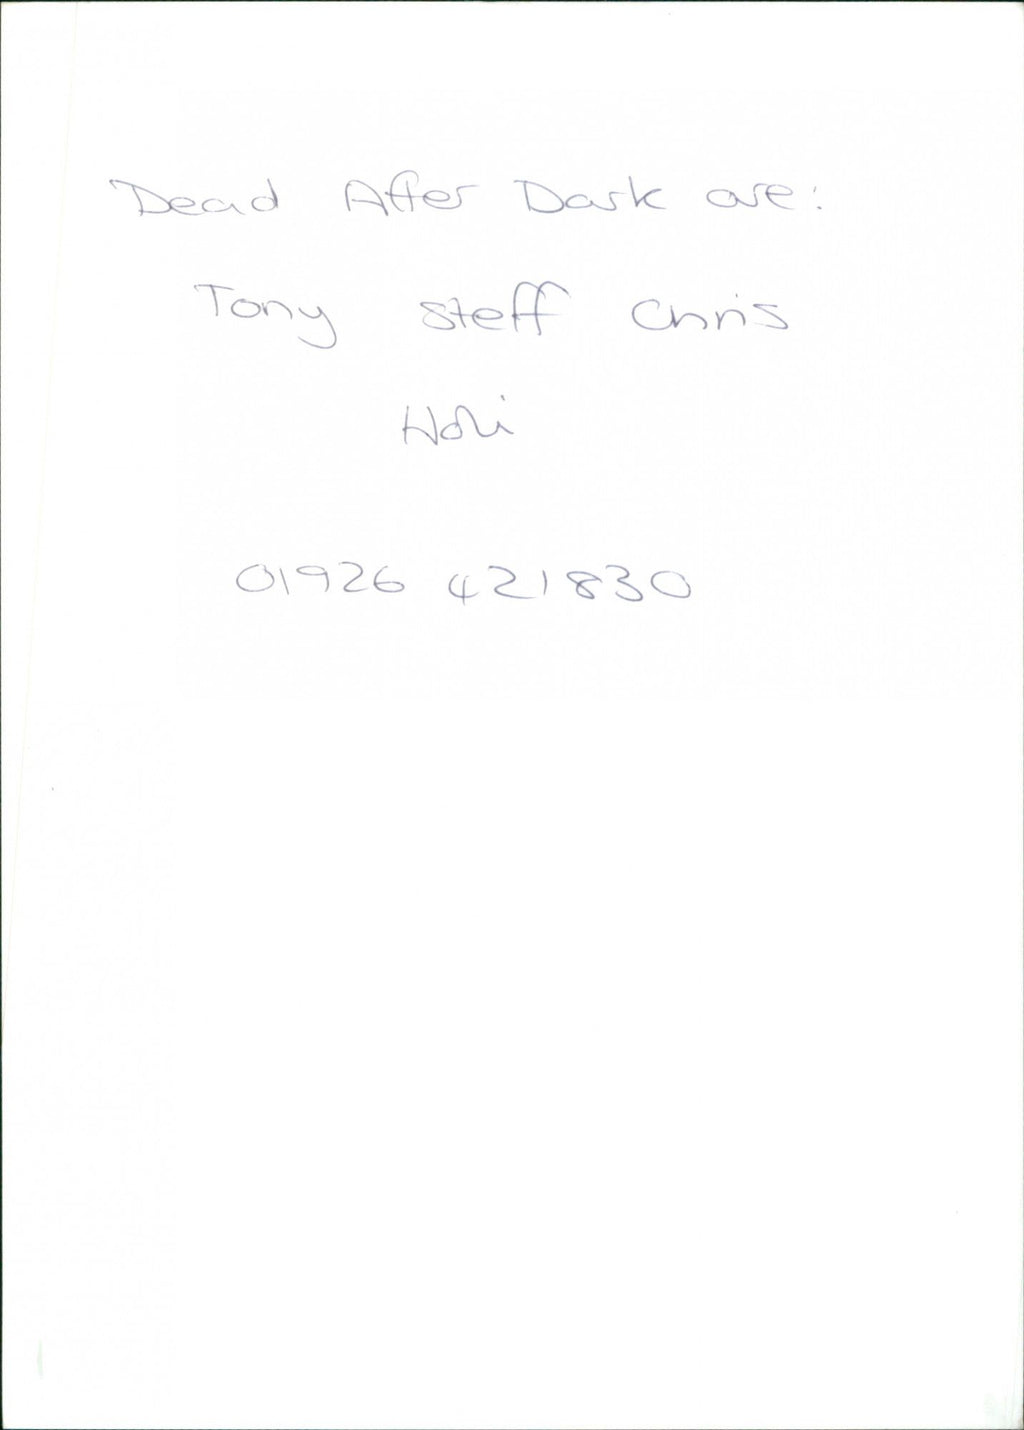 Dead After Dark are:
Tony Steff Chris
Holi
01926 421830